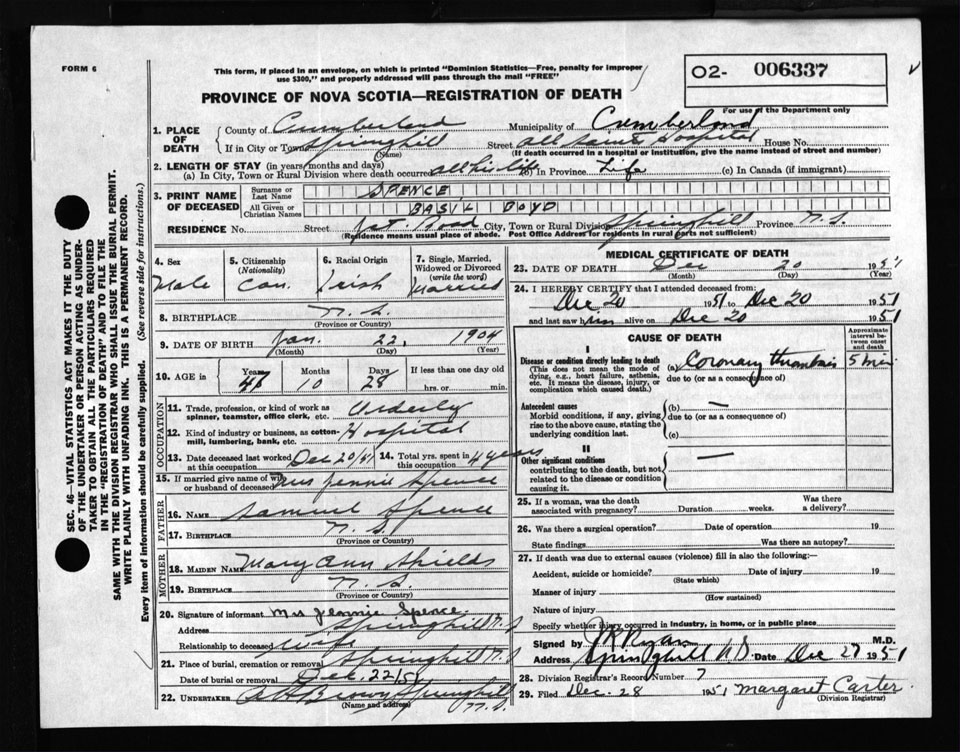 FORM 6
This form, if placed in an envelope, on which is printed "Dominion Statistics—Free, penalty for improper
use $300," and properly addressed will pass through the mail "FREE"
O2- 006337
PROVINCE OF NOVA SCOTIA—REGISTRATION OF DEATH
For use of the Department only
1. PLACE OF DEATH
County of Cumberland Municipality of Cumberland
If in City or Town Springhill (Name) Street All Saints Hospital House No.
(If death occurred in a hospital or institution, give the name instead of street and number)
2. LENGTH OF STAY (in years/months and days)
(a) In City, Town or Rural Division where death occurred all his life (b) In Province Life (c) In Canada (if immigrant)
3. PRINT NAME OF DECEASED
Surname or Last Name SPENCE
All Given or Christian Names BASIL BOYD
RESIDENCE No. Street Road City, Town or Rural Division Springhill Province N.S.
(Residence means usual place of abode. Post Office Address for residents in rural parts not sufficient)
4. Sex Male
5. Citizenship (Nationality) Can.
6. Racial Origin Irish
7. Single, Married, Widowed or Divorced (write the word) Married
8. BIRTHPLACE N.S.
(Province or Country)
9. DATE OF BIRTH Jan. 22, 1904
(Month) (Day) (Year)
10. AGE in Years 47 Months 10 Days 28 If less than one day old hrs. or min.
OCCUPATION
11. Trade, profession, or kind of work as spinner, teamster, office clerk, etc. Orderly
12. Kind of industry or business, as cotton-mill, lumbering, bank, etc. Hospital
13. Date deceased last worked at this occupation Dec 20/51
14. Total yrs. spent in this occupation 4 years
15. If married give name of wife or husband of deceased Mrs Jennie Spence
FATHER
16. NAME Samuel Spence
17. BIRTHPLACE N.S.
(Province or Country)
MOTHER
18. MAIDEN NAME Mary Ann Shields
19. BIRTHPLACE N.S.
(Province or Country)
20. Signature of informant Mrs Jennie Spence
Address Springhill N.S
Relationship to deceased wife
21. Place of burial, cremation or removal Springhill N.S
Date of burial or removal Dec. 22/51
22. UNDERTAKER A H Brown Springhill N.S.
(Name and address)
MEDICAL CERTIFICATE OF DEATH
23. DATE OF DEATH Dec 20 1951
(Month) (Day) (Year)
24. I HEREBY CERTIFY that I attended deceased from:
Dec 20 1951 to Dec 20 1951
and last saw him alive on Dec 20 1951
CAUSE OF DEATH
Approximate interval between onset and death
I
Disease or condition directly leading to death
(This does not mean the mode of dying, e.g., heart failure, asthenia, etc. It means the disease, injury, or complication which caused death.)
(a) Coronary thrombosis 5 min.
due to (or as a consequence of)
Antecedent causes
Morbid conditions, if any, giving rise to the above cause, stating the underlying condition last.
(b) —
due to (or as a consequence of)
(c)
II
Other significant conditions
contributing to the death, but not related to the disease or condition causing it.
—
25. If a woman, was the death associated with pregnancy? Duration weeks. Was there a delivery?
26. Was there a surgical operation? Date of operation 19
State findings Was there an autopsy?
27. If death was due to external causes (violence) fill in also the following:—
Accident, suicide or homicide? Date of injury 19
(State which)
Manner of injury
(How sustained)
Nature of injury
Specify whether injury occurred in industry, in home, or in public place
Signed by J R Ryan M.D.
Address Springhill N.S. Date Dec 27 1951
28. Division Registrar's Record Number 7
29. Filed Dec. 28 1951 Margaret Carter.
(Division Registrar)
SEC. 46—VITAL STATISTICS ACT MAKES IT THE DUTY
OF THE UNDERTAKER OR PERSON ACTING AS UNDER-
TAKER TO OBTAIN ALL THE PARTICULARS REQUIRED
IN THE "REGISTRATION OF DEATH" AND TO FILE THE
SAME WITH THE DIVISION REGISTRAR WHO SHALL ISSUE THE BURIAL PERMIT.
WRITE PLAINLY WITH UNFADING INK. THIS IS A PERMANENT RECORD.
Every item of information should be carefully supplied. (See reverse side for instructions.)